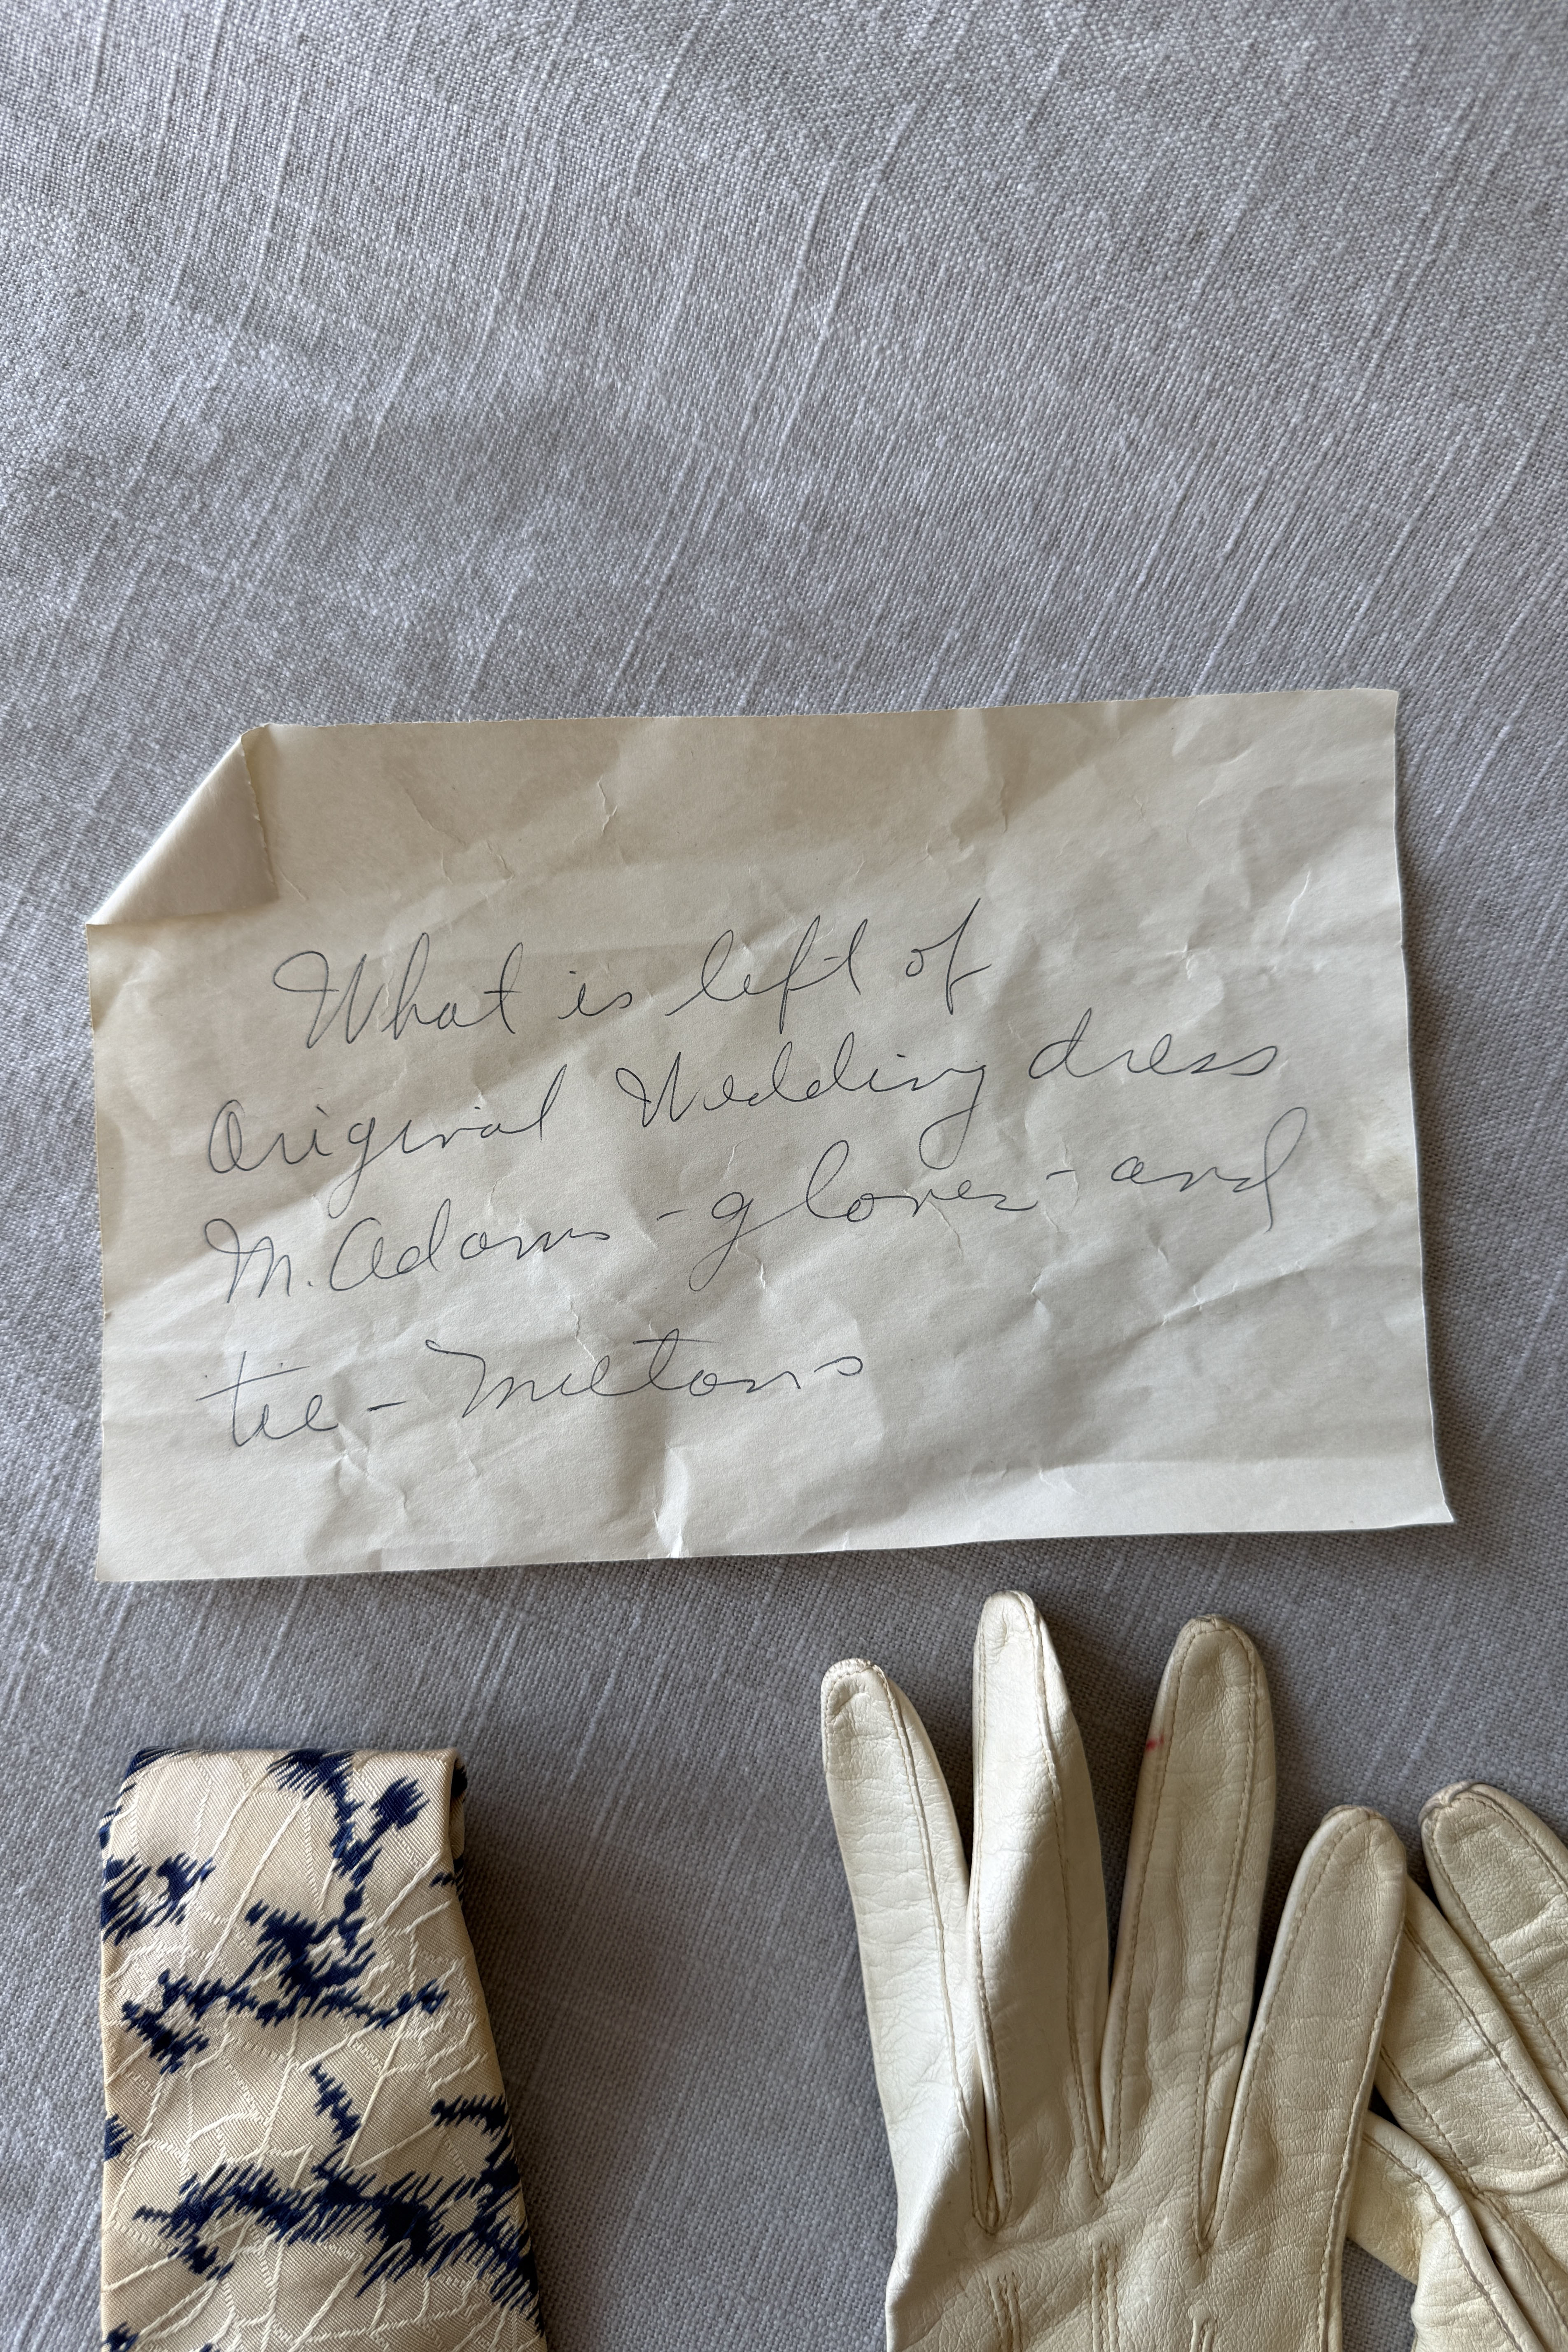 What is left of
Original Wedding dress
M. Adams - gloves - and
tie - Miltons